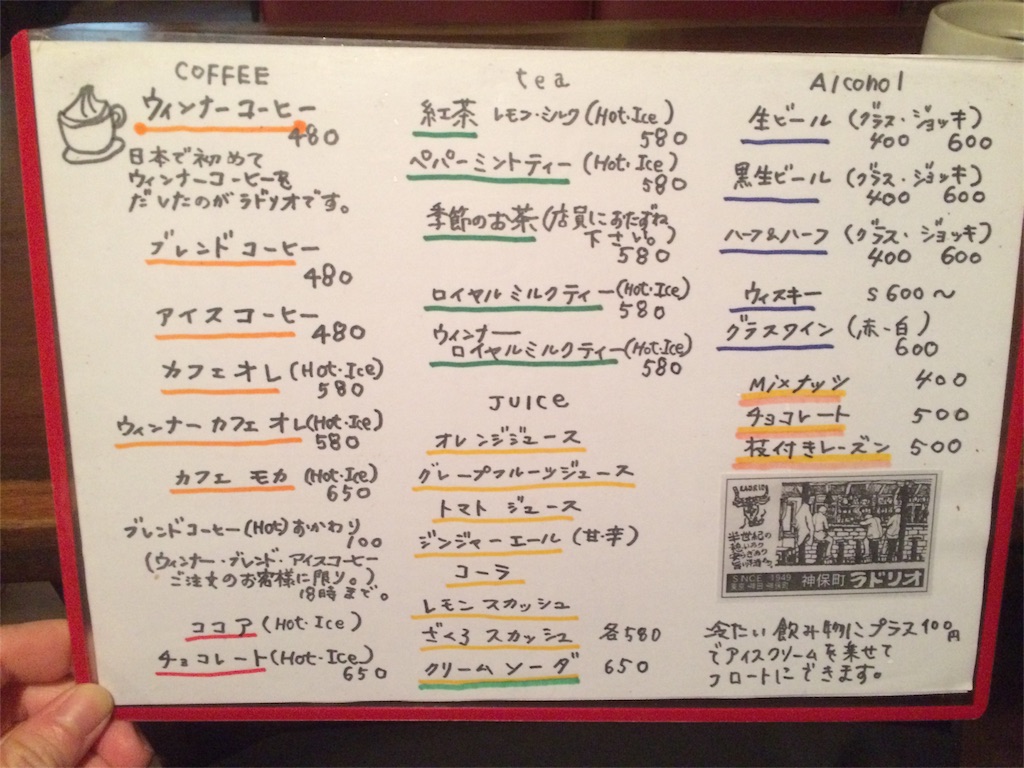 COFFEE
ウィンナーコーヒー
480
日本で初めて
ウィンナーコーヒーを
だしたのがラドリオです。
ブレンド コーヒー
480
アイス コーヒー
480
カフェ オレ (Hot・Ice)
580
ウィンナー カフェ オレ (Hot・Ice)
580
カフェ モカ (Hot・Ice)
650
ブレンドコーヒー (Hot) おかわり
100
(ウィンナー・ブレンド・アイスコーヒー
ご注文のお客様に限り。)
18時まで。
ココア (Hot・Ice)
チョコレート (Hot・Ice)
650
tea
紅茶 レモン・ミルク (Hot・Ice)
580
ペパーミントティー (Hot・Ice)
580
季節のお茶 (店員におたずね
下さい。)
580
ロイヤル ミルク ティー (Hot・Ice)
580
ウィンナー
ロイヤルミルクティー (Hot・Ice)
580
JUICE
オレンジジュース
グレープフルーツジュース
トマト ジュース
ジンジャーエール (甘・辛)
コーラ
レモン スカッシュ
ざくろ スカッシュ 各580
クリーム ソーダ 650
Alcohol
生ビール (グラス・ジョッキ)
400 600
黒生ビール (グラス・ジョッキ)
400 600
ハーフ&ハーフ (グラス・ジョッキ)
400 600
ウィスキー S 600~
グラスワイン (赤・白)
600
Mixナッツ 400
チョコレート 500
枝付きレーズン 500
SINCE 1949
神保町 ラドリオ
冷たい飲み物にプラス100円
でアイスクリームを乗せて
フロートにできます。